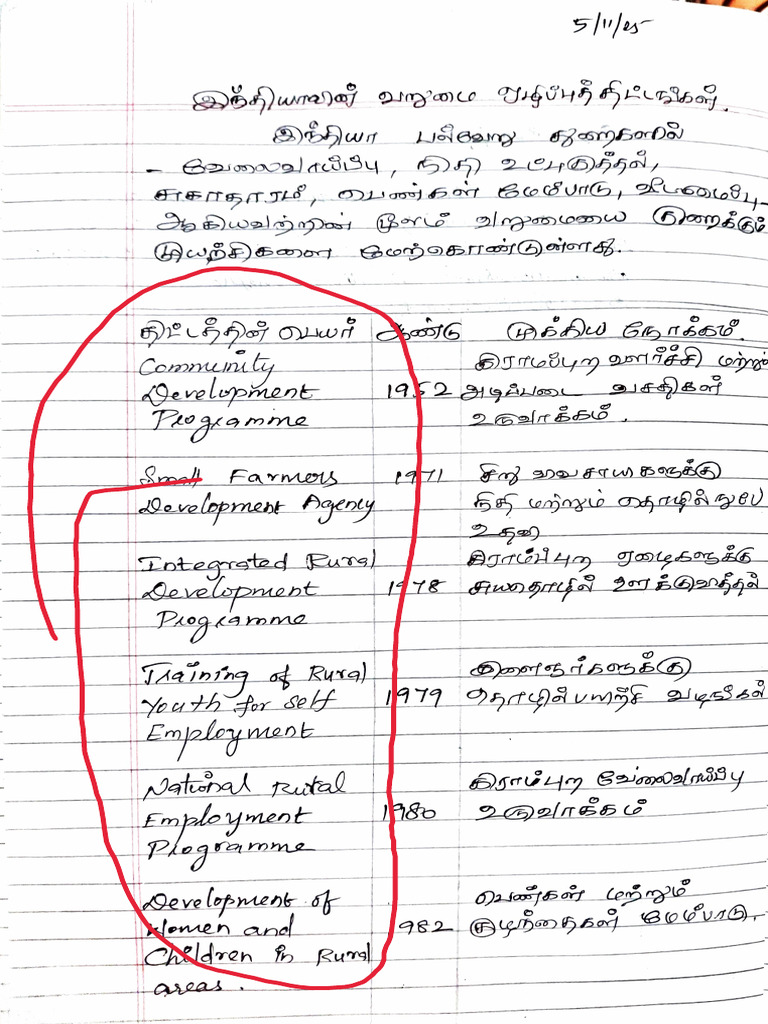 5/11/25
இந்தியாவின் வறுமை ஒழிப்புத் திட்டங்கள்.
இந்தியா பல்வேறு துறைகளில்
- வேலைவாய்ப்பு, நிதி உட்புகுத்தல்,
சுகாதாரம், பெண்கள் மேம்பாடு, வீடமைப்பு -
ஆகியவற்றின் மூலம் வறுமையை குறைக்கும்
முயற்சிகளை மேற்கொண்டுள்ளது.
திட்டத்தின் பெயர் ஆண்டு முக்கிய நோக்கம்.
Community கிராமப்புற வளர்ச்சி மற்றும்
Development 1952 அடிப்படை வசதிகள்
Programme உருவாக்கம்.
Small Farmers 1971 சிறு விவசாயிகளுக்கு
Development Agency நிதி மற்றும் தொழில்நுட்ப
உதவி
Integrated Rural கிராமப்புற ஏழைகளுக்கு
Development 1978 சுயதொழில் ஊக்குவித்தல்
Programme
Training of Rural இளைஞர்களுக்கு
Youth for self 1979 தொழில் பயிற்சி வழங்கல்
Employment
National Rural கிராமபுற வேலைவாய்ப்பு
Employment 1980 உருவாக்கம்
Programme
Development of பெண்கள் மற்றும்
Women and 1982 குழந்தைகள் மேம்பாடு.
Children in Rural
areas.